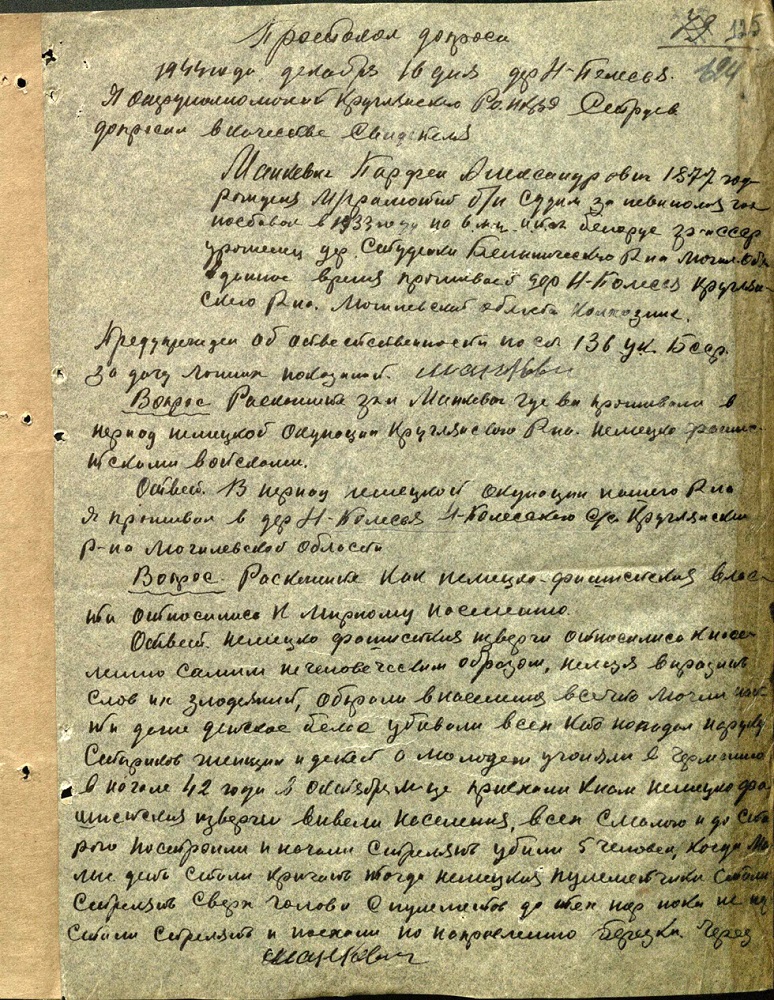 125
124
Протокол допроса
1944 года декабря 16 дня дер Н-Полесья.
Я Оперуполномочен Круглянского Ро. НКВД
допросил в качестве Свидетеля
Манкевич Парфен Александрович 1877 года
рождения М/грамотный б/п Судим за
в 1933 году на 6 м-ц Беларус гр-н ССР
уроженец дер. Студенка Белыничского Р-на Могил. обл
в данное время проживает дер Н-Полесья Круглян-
ского Р-на. Могилевской области Колхозник.
Предупрежден об ответственности по ст 136 ук. Бсср.
за дачу ложных показаний. Манкевич
Вопрос Раскажите гр-н Манкевич где вы проживали в
период немецкой Окупации Круглянского Р-на. немецко фашис-
тскими войсками.
Ответ. В период немецкой окупации нашего Р-на
Я проживал в дер Н-Полесья Н-Полесского с/с. Круглянский
Р-на Могилевской области
Вопрос. Раскажите Как немецко-фашистския влас-
ти относились К мирному населению.
Ответ. немецко фашисткия изверги относились к насе-
лению самым нечеловеческим образом, нельзя выразить
слов их злодеяний, обирали в населения всё что могли
ти даже детское белье убивали всех кто попадал на руку
Стариков женщин и детей а молодежь угоняли в Германию
в начале 42 года в Октябре м-це приехали К нам немецко фа-
шистския изверги вывели населения, всех С малого и до ста-
рого построили и начали стрелять убили 5 человек, Когда ма-
лые дети стали кричать тогда немецкия пулеметчики стали
Стрелять Сверх головы С пулеметов до тех пор пока не
Стали Стрелять и поехали по направлению Березка. Через
Манкевич